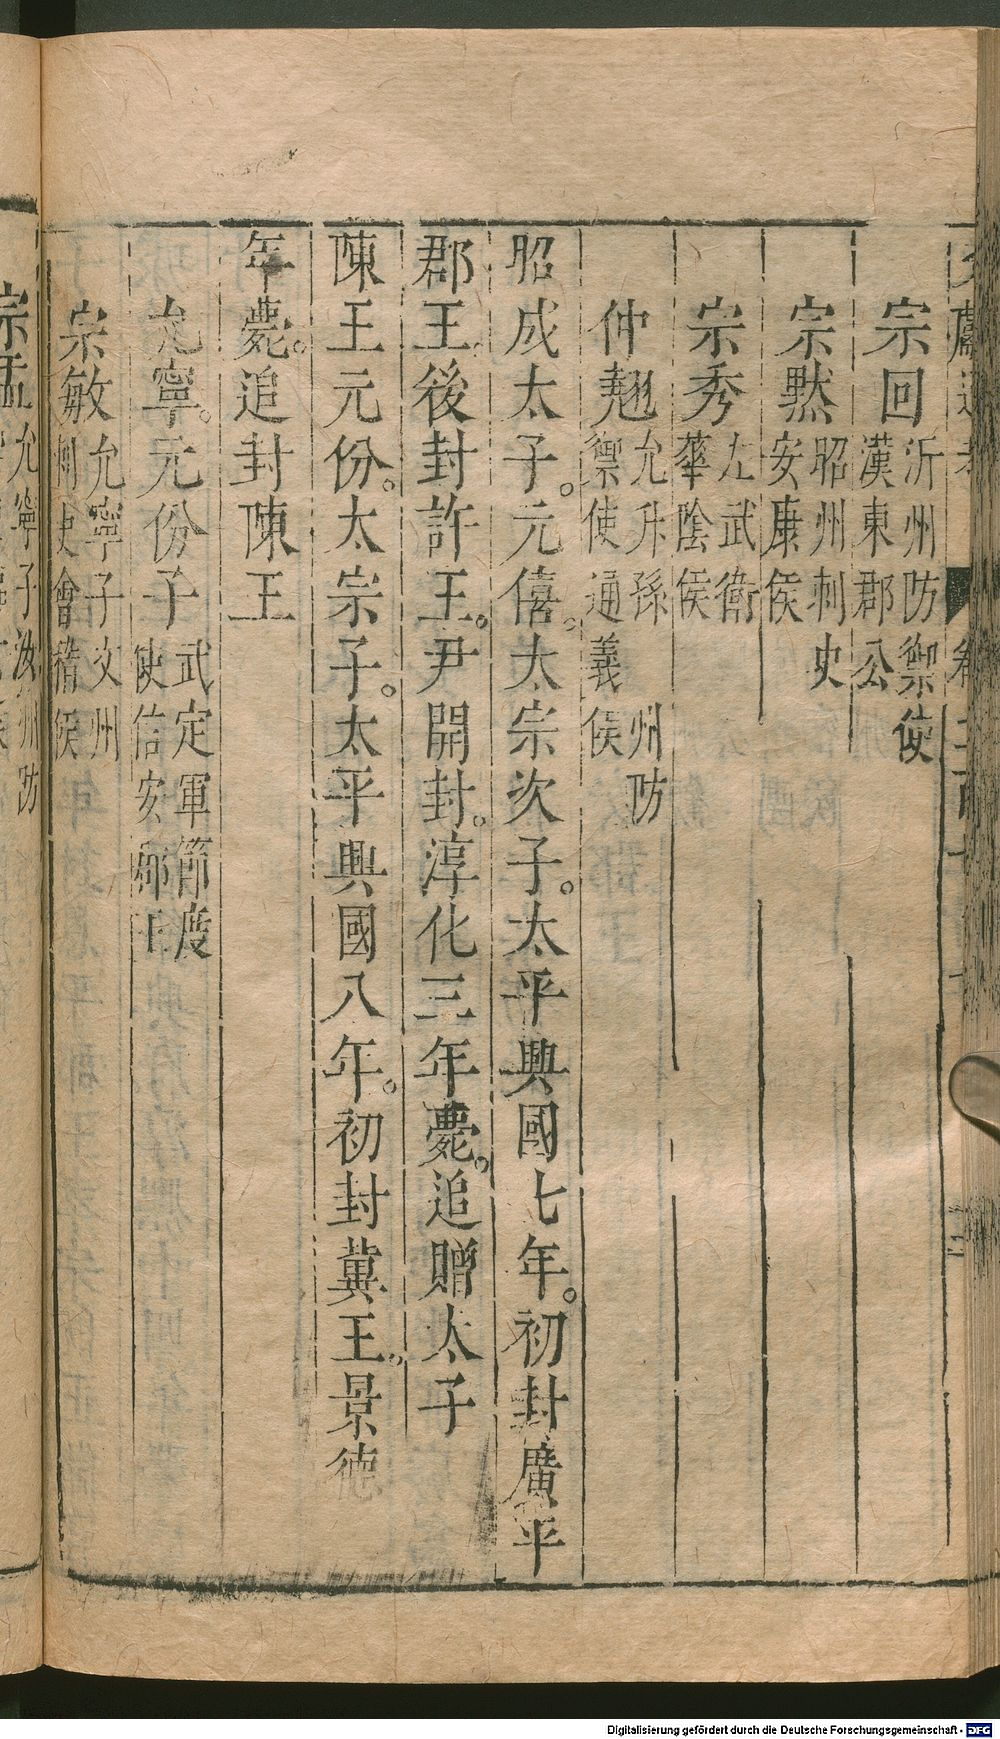 宗回沂州防禦使漢東郡公
宗默昭州刺史安康侯
宗秀左武衛華陰侯
仲翹允升孫州防禦使通義侯
昭成太子。元僖。太宗次子。太平興國七年。初封廣平
郡王。後封許王。尹開封。淳化三年薨。追贈太子
陳王元份。太宗子。太平興國八年。初封冀王。景德
年薨。追封陳王
允寧。元份子武定軍節度使信安郡王
宗敏允寧子文州刺史會稽侯
允寧子汝州防
Digitalisierung gefördert durch die Deutsche Forschungsgemeinschaft - DFG